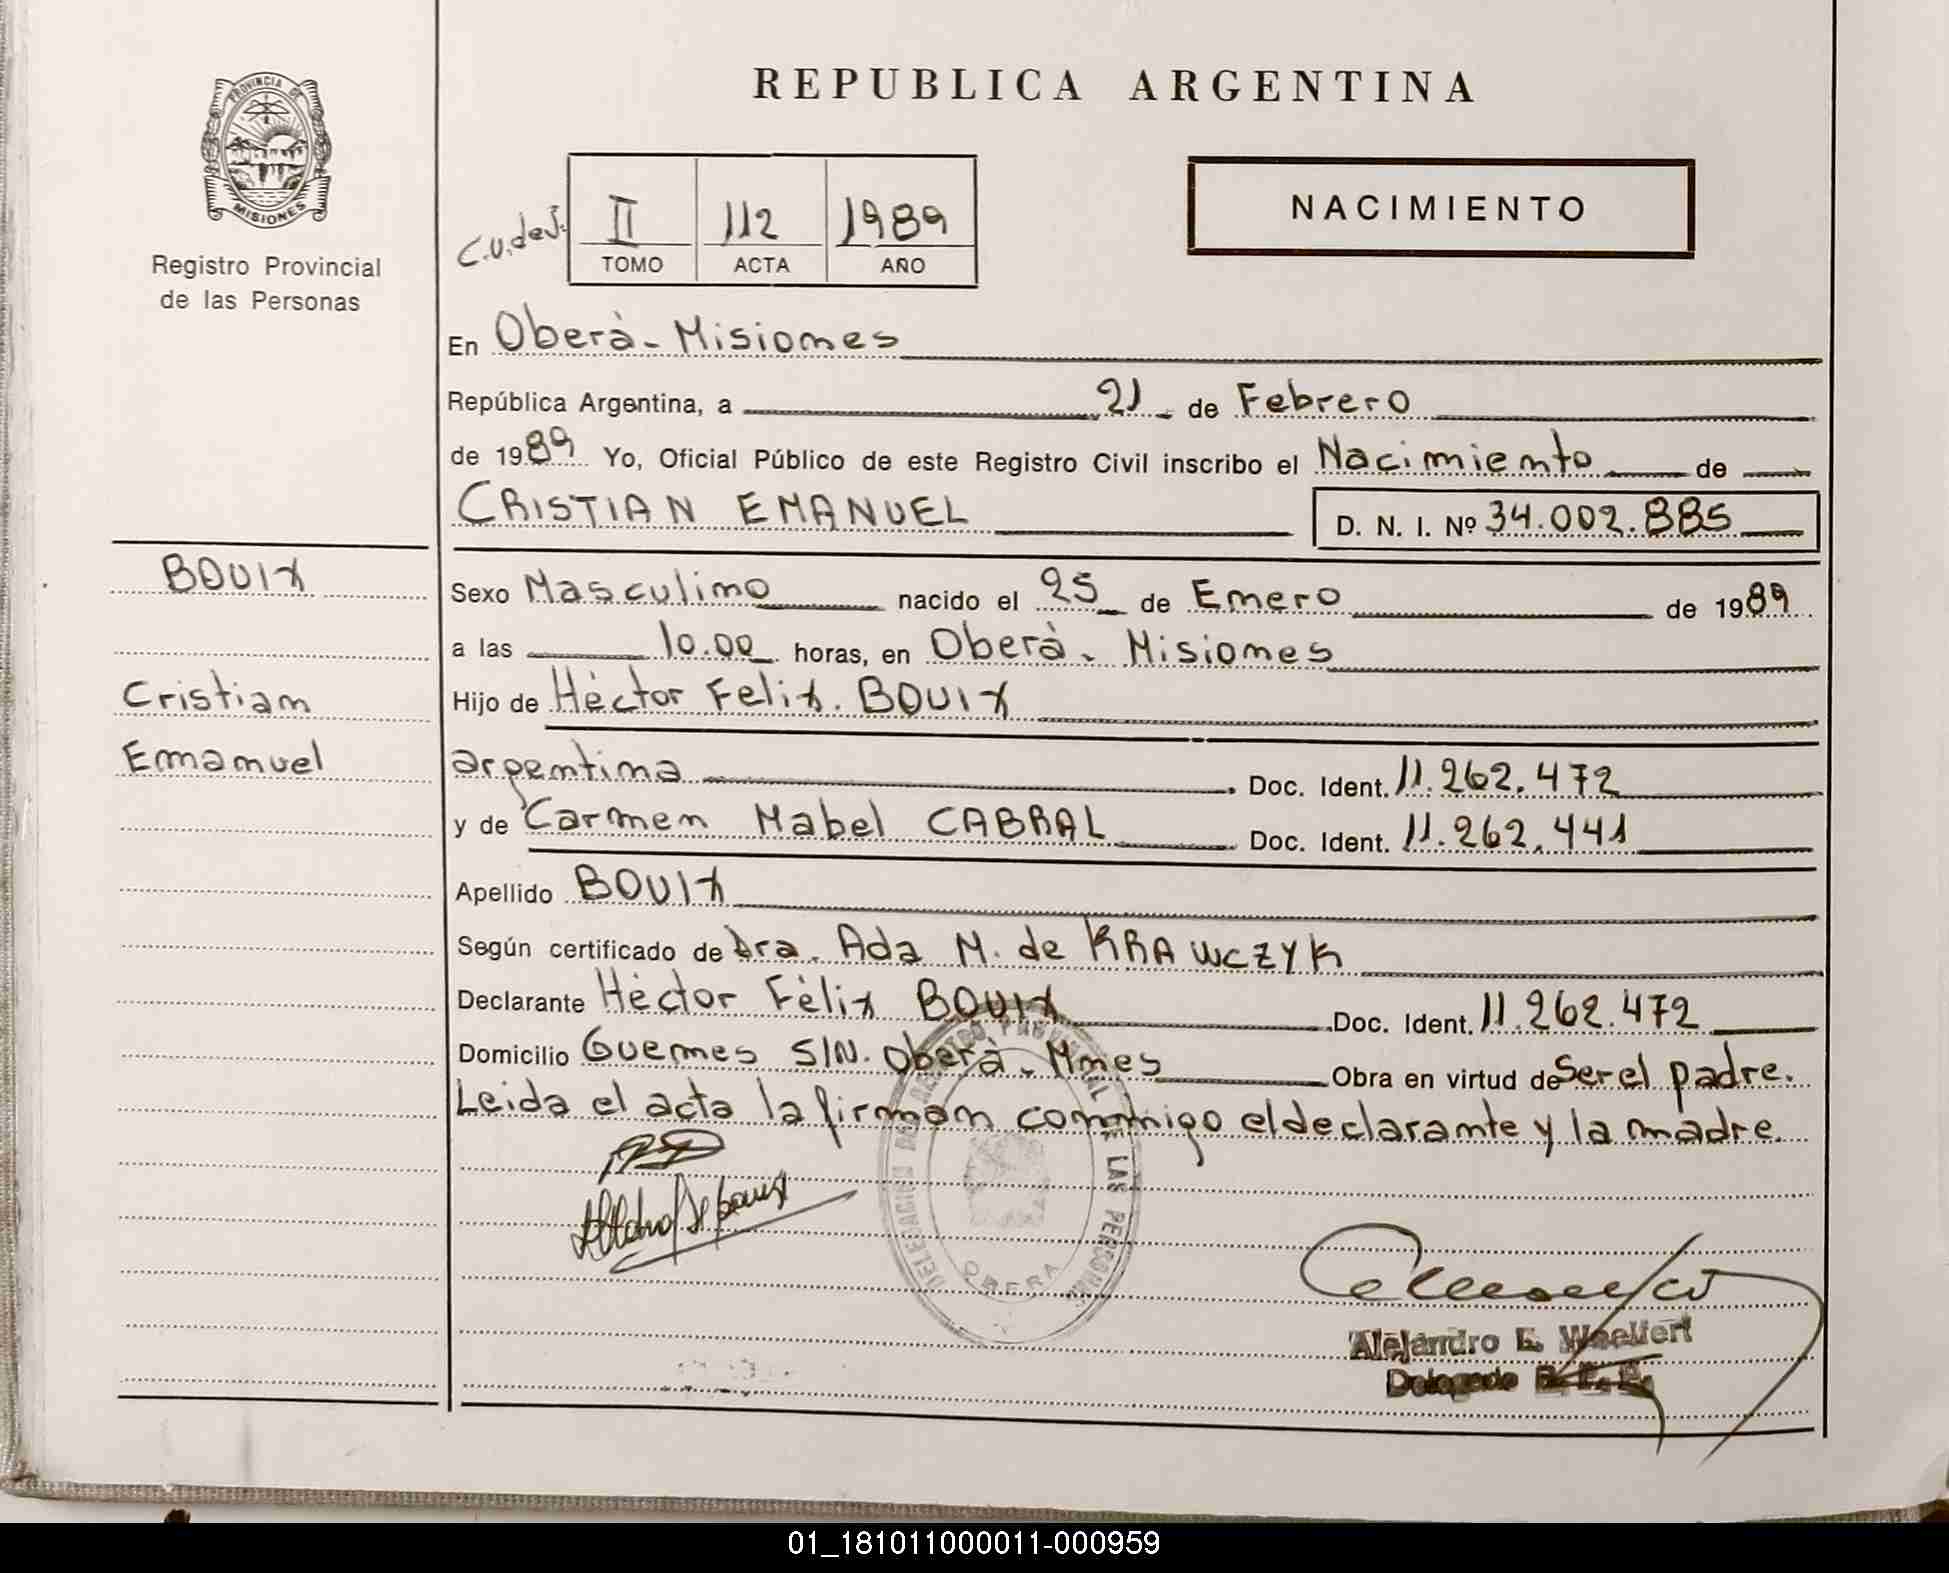 REPUBLICA ARGENTINA
PROVINCIA DE
MISIONES
Registro Provincial
de las Personas
C.U.deJ:
II 112 1989
TOMO ACTA AÑO
NACIMIENTO
En Oberà - Misiones
República Argentina, a 21 de Febrero
de 1989 Yo, Oficial Público de este Registro Civil inscribo el Nacimiento de
CRISTIAN EMANUEL D. N. I. Nº 34.002.885
BOUIX
Sexo Masculino nacido el 25 de Enero de 1989
a las 10.00 horas, en Oberà - Misiones
Cristian
Hijo de Hèctor Felix. BOUIX
Emanuel
argentina Doc. Ident. 11.262.472
y de Carmen Mabel CABRAL Doc. Ident. 11.262.441
Apellido BOUIX
Según certificado de Dra. Ada M. de KRAWCZYK
Declarante Hèctor Fèlix BOUIX Doc. Ident. 11.262.472
Domicilio Guemes S/N. Oberà - Mnes Obra en virtud de Ser el padre.
Leida el acta la firman conmigo el declarante y la madre.
DELEGACION DE LAS PERSONAS
OBERA
Alejandro E. Woelfert
Delegado R. P. P.
01_181011000011-000959